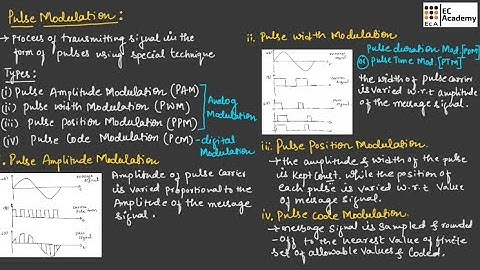 Pulse Modulation:
→ Process of transmitting signal in the
form of pulses using special technique
Types:
(i) Pulse Amplitude Modulation (PAM)
(ii) Pulse width Modulation (PWM)
(iii) Pulse Position Modulation (PPM)
Analog
Modulation
(iv) Pulse Code Modulation (PCM) - digital
Modulation
i. Pulse Amplitude Modulation
Amplitude of pulse carrier
is varied proportional to the
Amplitude of the message
signal.
EC
Academy
ECA
ii. Pulse width Modulation
Pulse duration Mod. [PDM]
(or) Pulse Time Mod. [PTM]
the width of pulse carrier
is varied w.r.t amplitude
of the message signal.
iii. Pulse Position Modulation.
→ the amplitude & width of the pulse
is kept const. while the position of
each pulse is varied w.r.t value
of message signal.
iv. Pulse Code Modulation.
→ message signal is sampled & rounded
-off to the nearest value of finite
set of allowable values & coded.